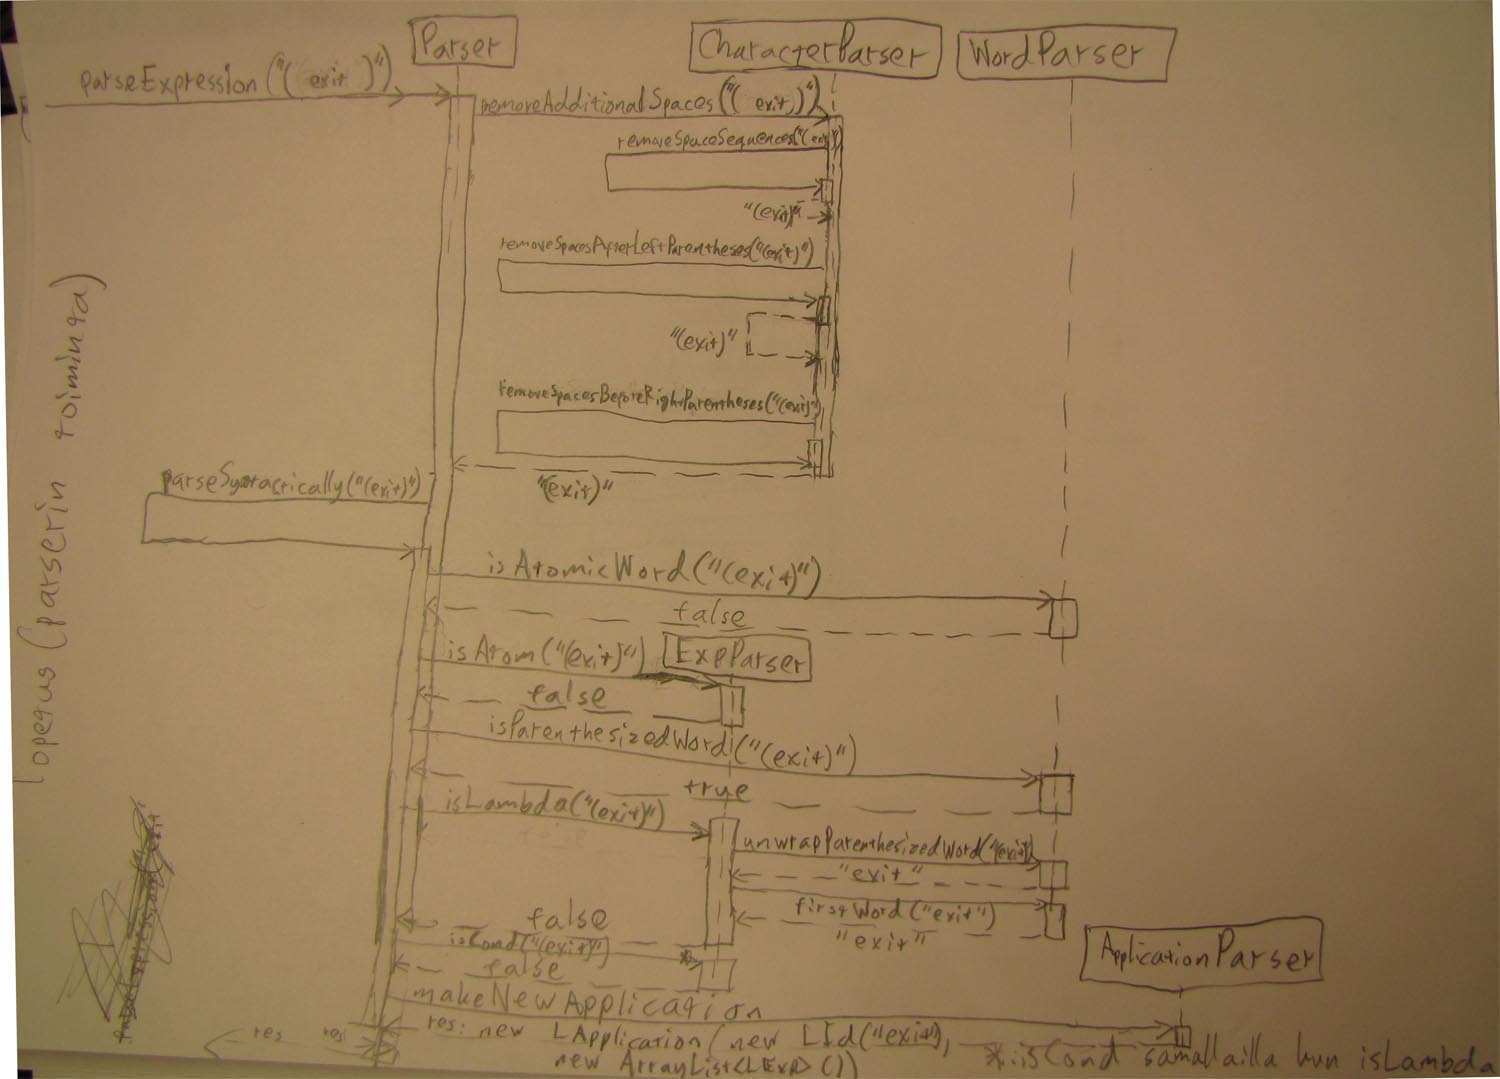 Parser
CharacterParser
WordParser
parseExpression("( exit )")
removeAdditionalSpaces("( exit )")
removeSpaceSequences("( exit )")
"(exit)"
removeSpacesAfterLeftParentheses("(exit)")
"(exit)"
removeSpacesBeforeRightParentheses("(exit)")
"(exit)"
parseSyntactically("(exit)")
isAtomicWord("(exit)")
false
isAtom("(exit)")
ExpParser
false
isParenthesizedWord("(exit)")
true
isLambda("(exit)")
unwrapParenthesizedWord("(exit)")
"exit"
firstWord("exit")
"exit"
false
isCond("(exit)") *
false
ApplicationParser
makeNewApplication
res: new LApplication(new LId("exit"),
new ArrayList<LExp>())
res res
*: isCond samallailla kun isLambda
lopetus (parserin toiminta)